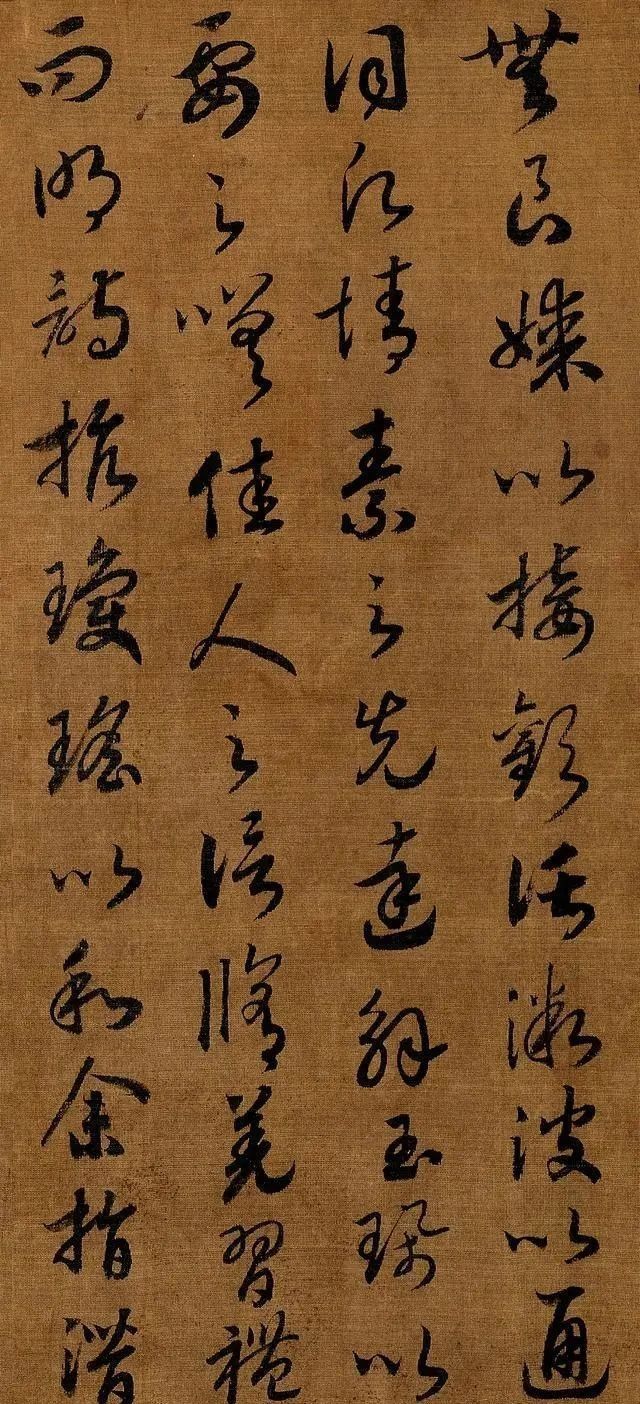 無良媒以接歡託微波以通
詞情素之先達解玉珮以
要之嗟佳人之信脩羌習禮
而明詩抗瓊瑤以和余指潛